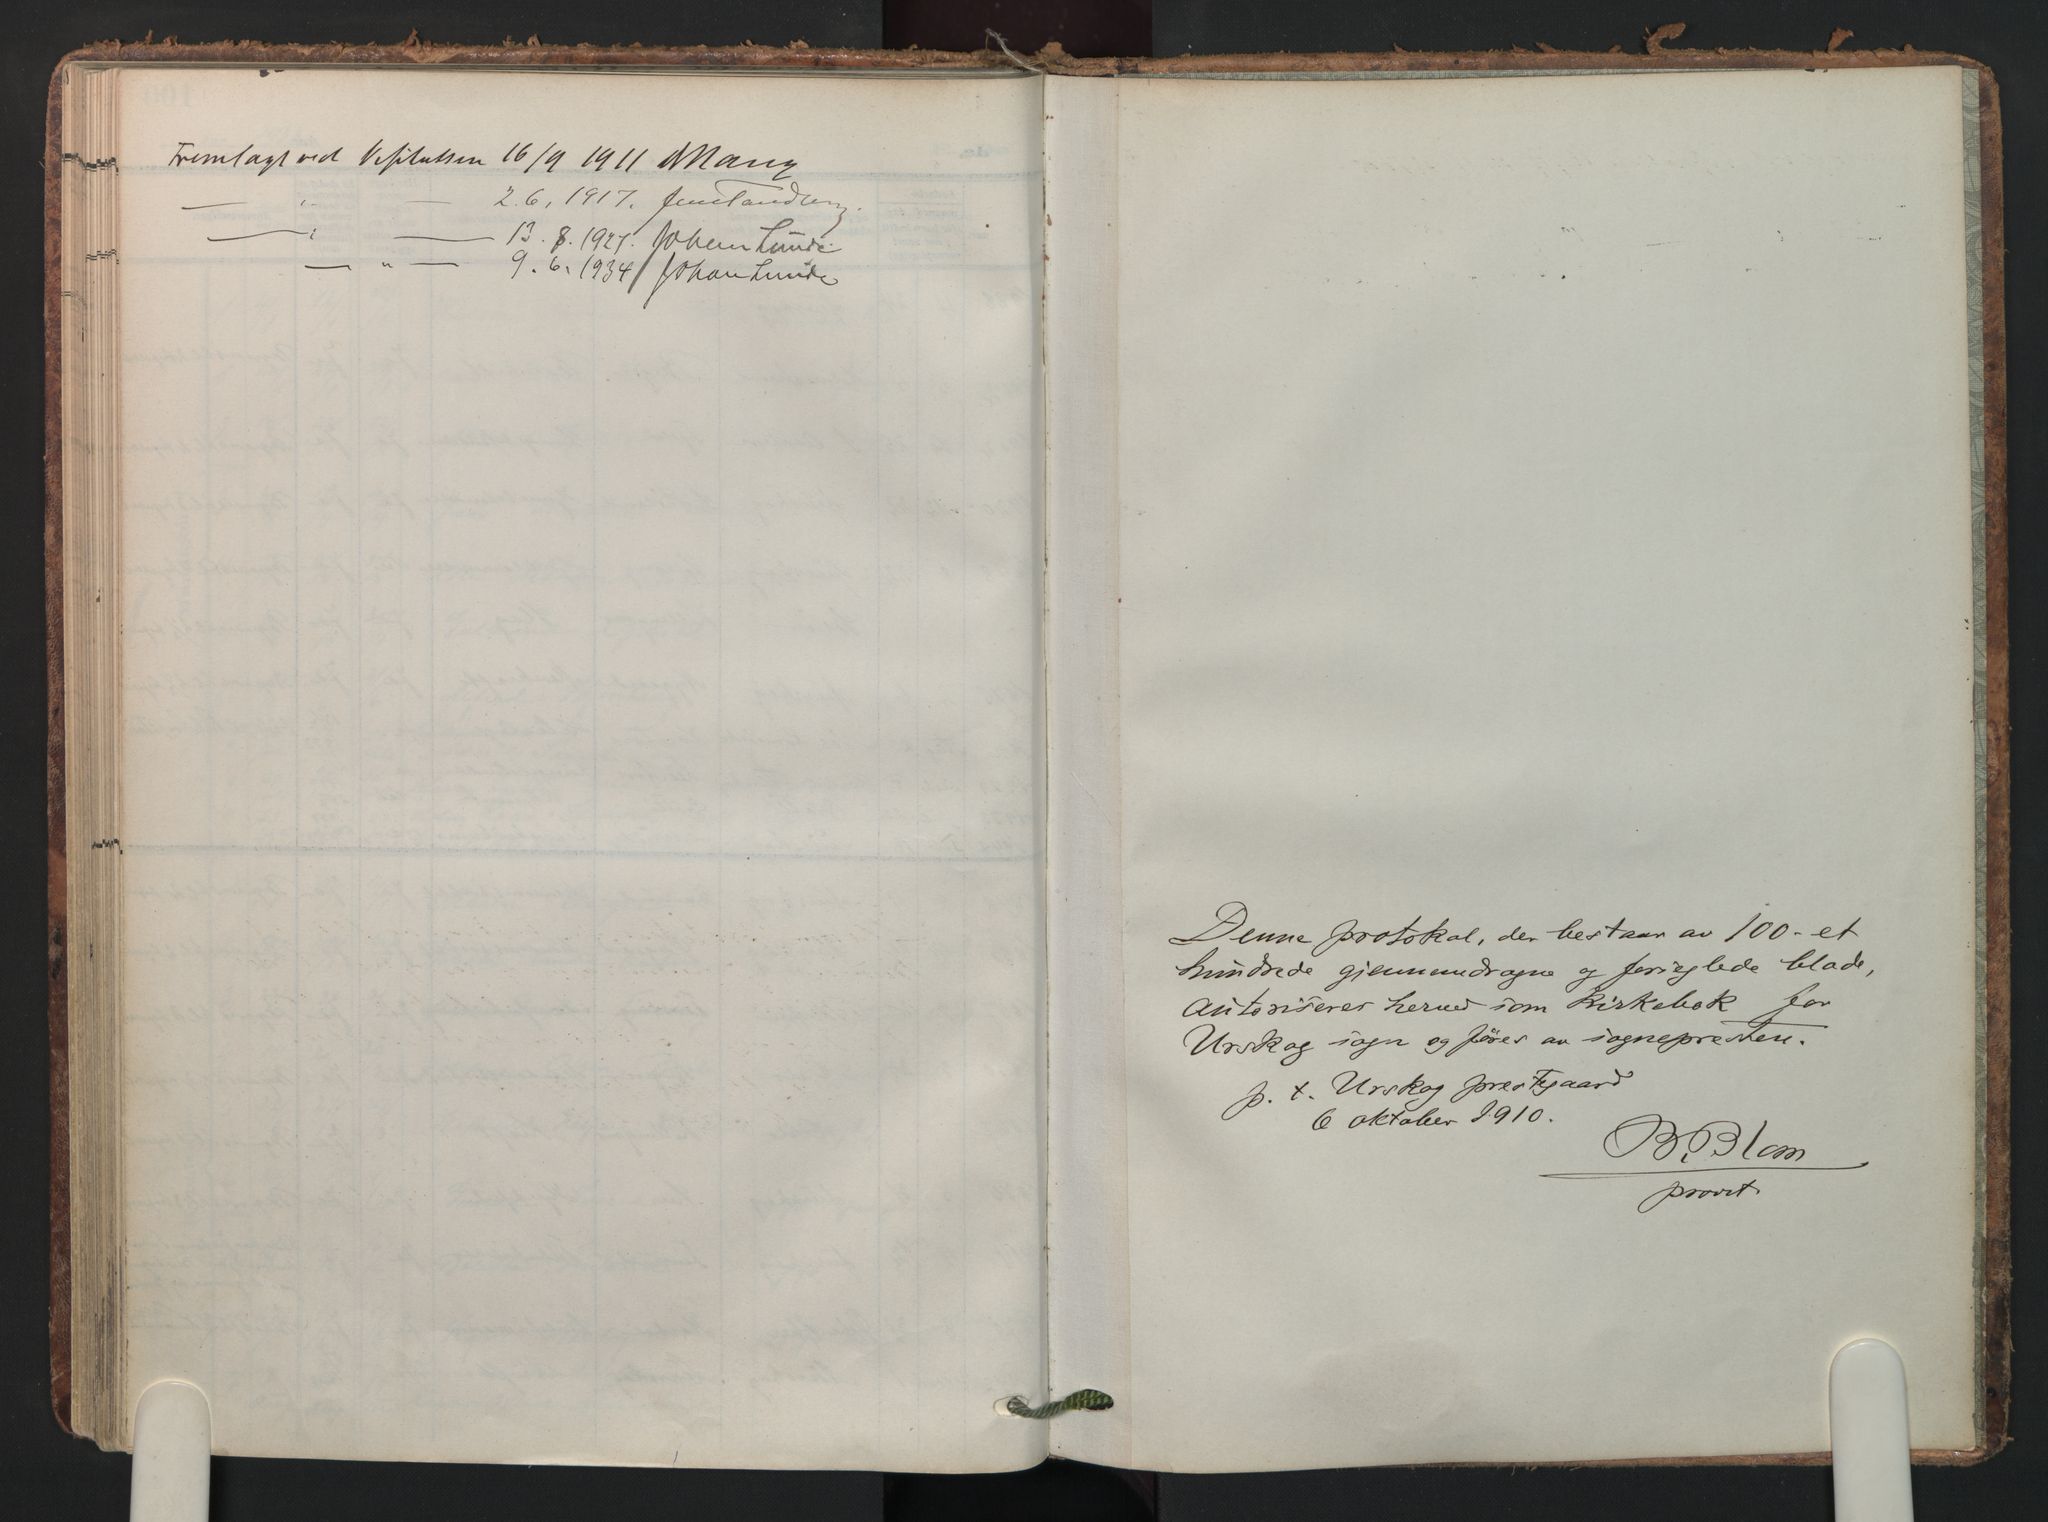 Fremlagt ved Visitatsen 16/9 1911 AMang
— " — 2.6. 1917. Jens Tandberg.
— " — 13. 8. 1927. Johan Lunde
— " — 9. 6. 1934 / Johan Lunde
Denne protokol, der bestaar av 100 - et
hundrede gjennemdragne og forseglede blade,
autoriseres herved som kirkebok for
Urskog sogn og føres av sognepresten.
p. t. Urskog prestegaard
6 oktober 1910.
B. Blom
provst